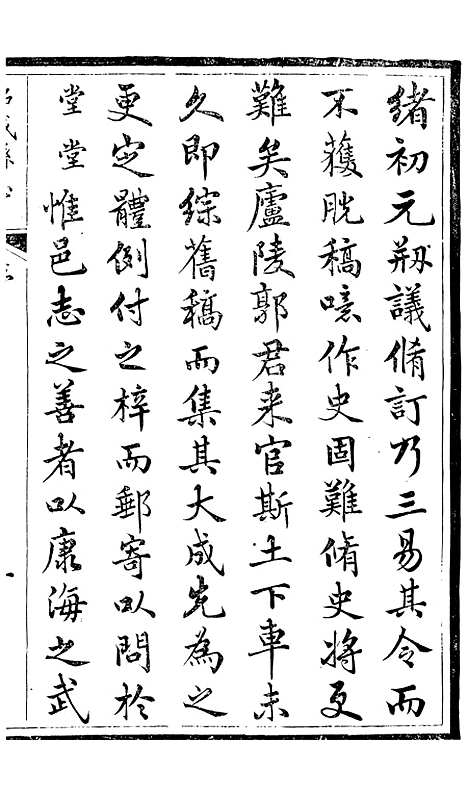 緒初元剏議脩訂乃三易其令而
不蒦脫稿噫作史固難脩史將更
難矣廬陵郭君来官斯土下車未
久即綜舊稿而集其大成先為之
更定體例付之梓而郵寄以問於
堂堂惟邑志之善者以康海之武